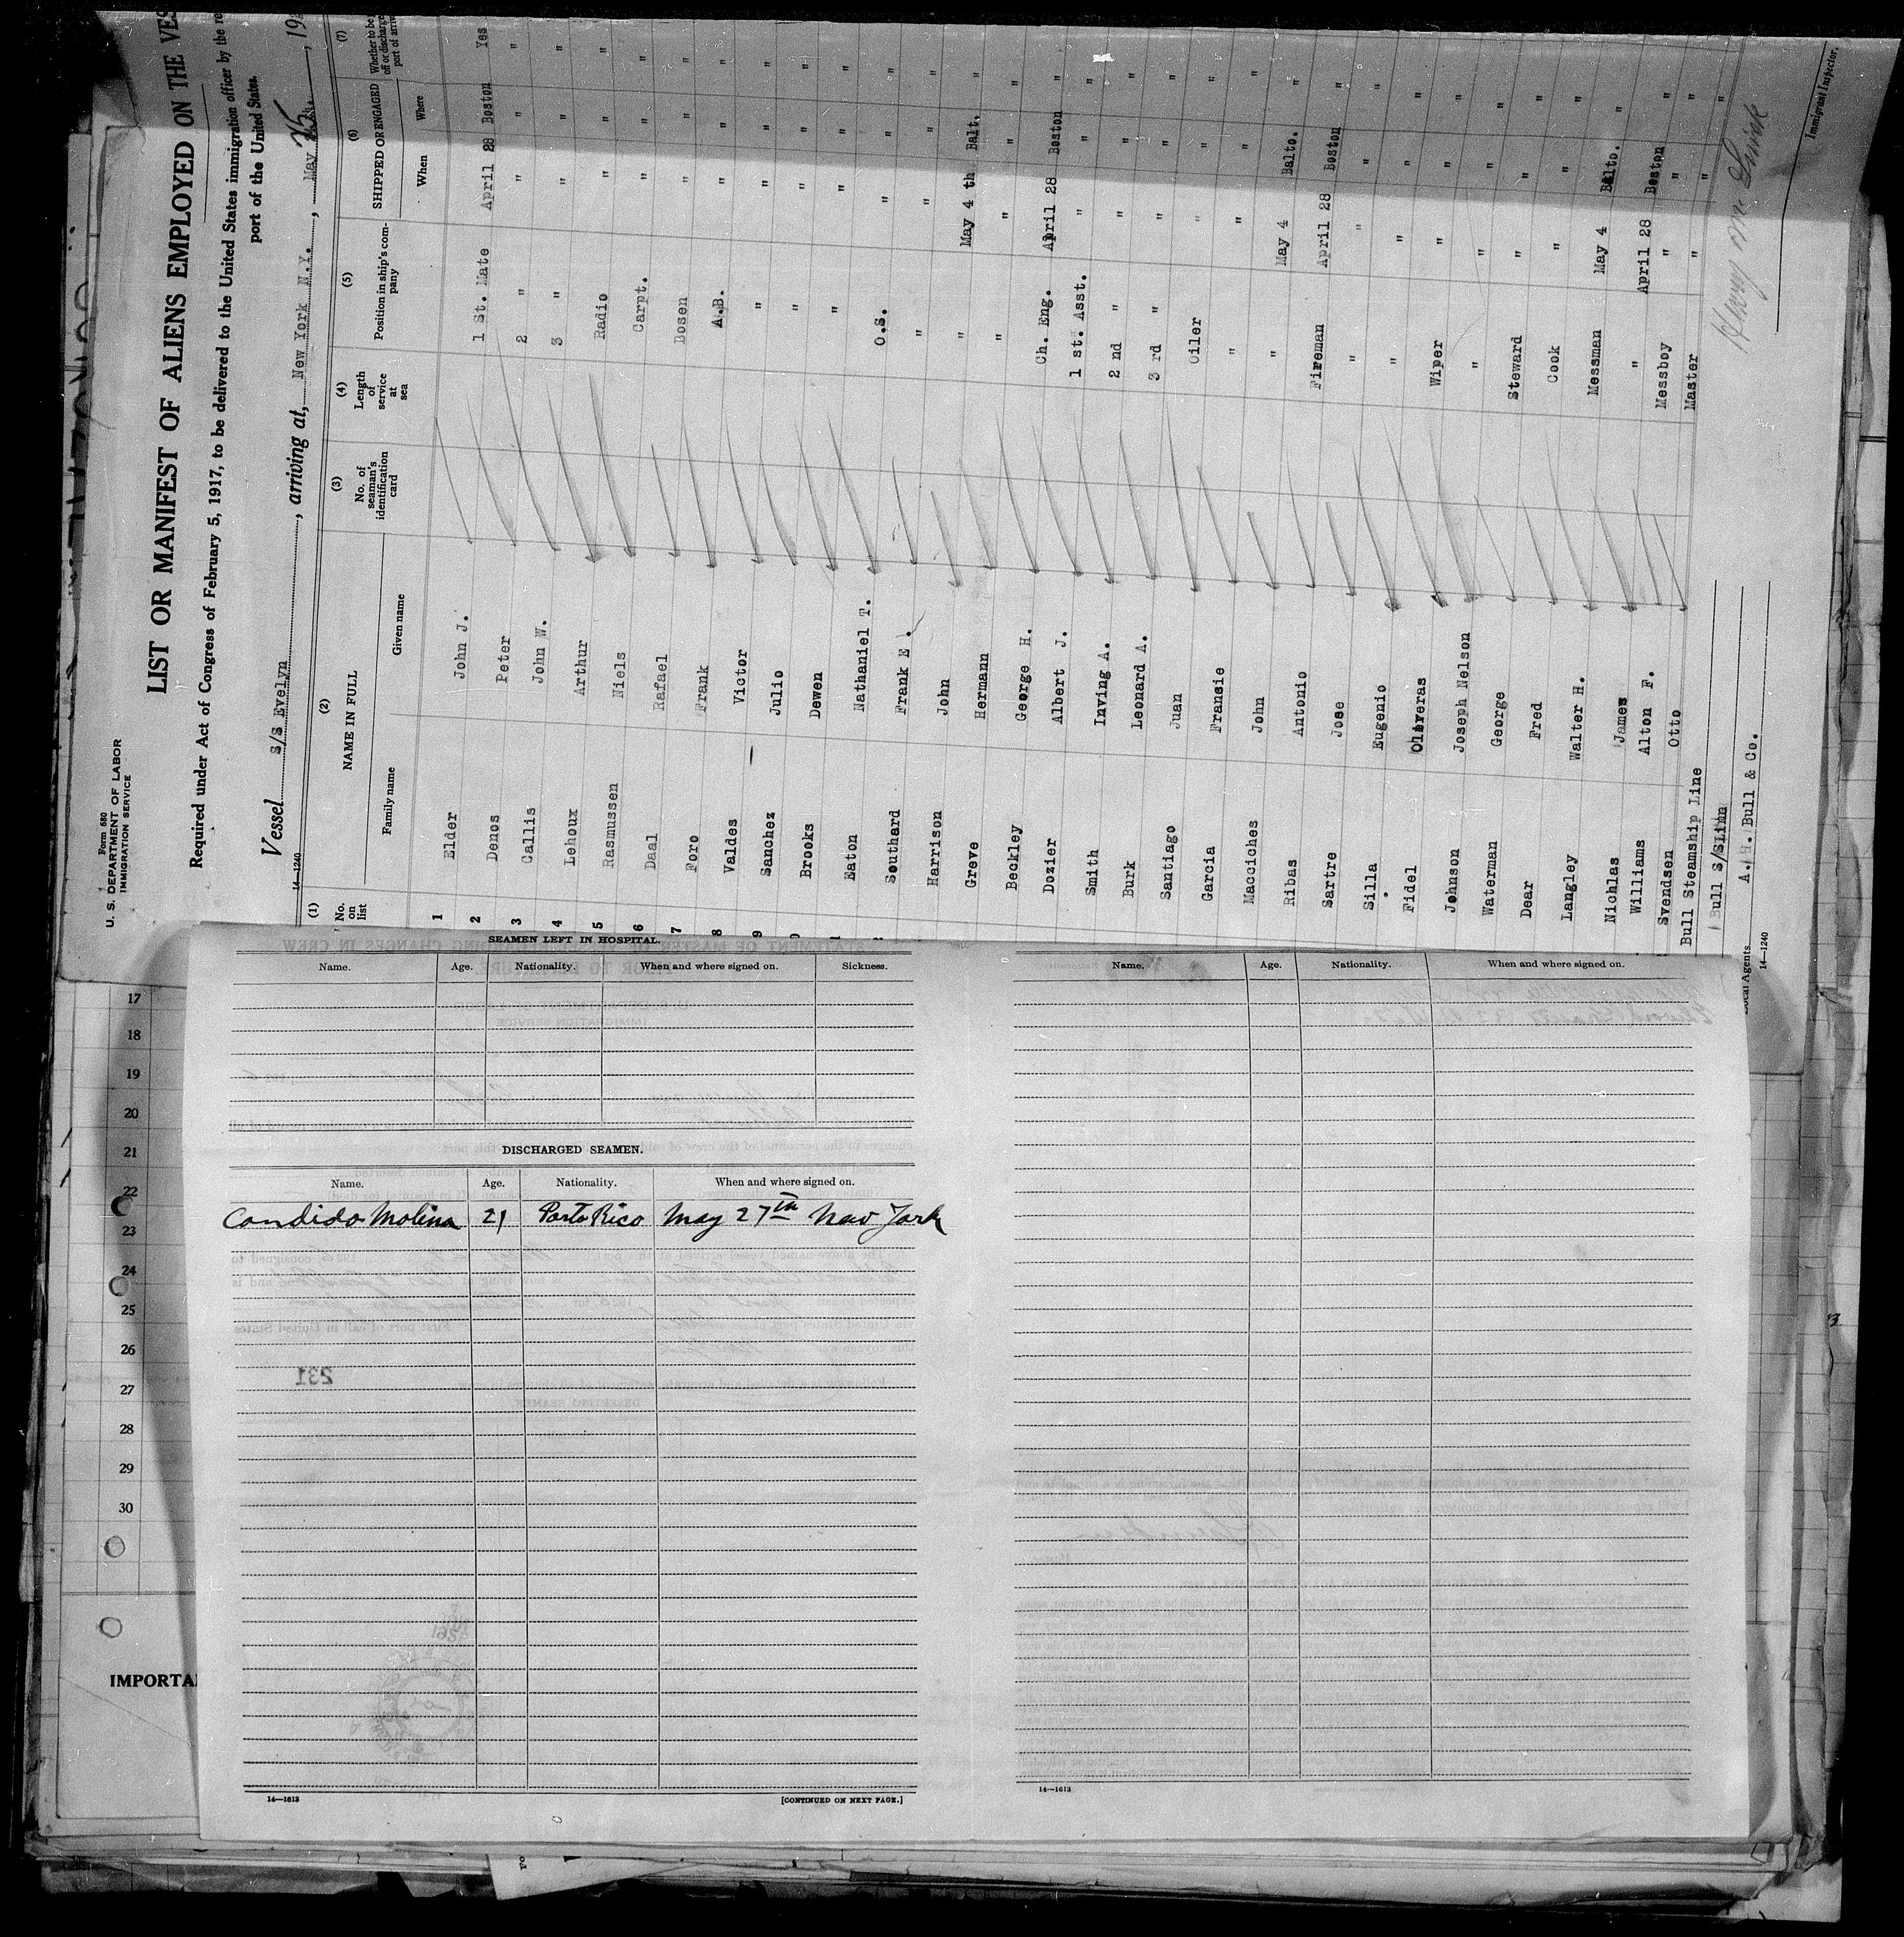 Form 680
U. S. DEPARTMENT OF LABOR
IMMIGRATION SERVICE
LIST OR MANIFEST OF ALIENS EMPLOYED ON THE VES
Required under Act of Congress of February 5, 1917, to be delivered to the United States immigration officer by the re
port of the United States
Vessel S/S Evelyn, arriving at, New York N.Y., May 25, 19
14—1240
(1) (2) (3) (4) (5) (6) (7)
No. on list
NAME IN FULL
Family name Given name
No. of seaman's identification card
Length of service at sea
Position in ship's company
SHIPPED OR ENGAGED
When Where
Whether to be
off or discharge
port of arriv
1 Elder John J. 1 St. Mate April 28 Boston Yes
2 Denos Peter 2 " " " "
3 Callis John W. 3 " " " "
4 Lehoux Arthur Radio " " "
5 Rasmussen Niels Carpt. " " "
6 Daal Rafael Bosen " " "
7 Foro Frank A.B. " " "
8 Valdes Victor " " " "
9 Sanchez Julio " " " "
0 Brooks Dewen " " " "
1 Eaton Nathaniel T. O.S. " " "
Southard Frank E. " " " "
Harrison John " May 4 th Balt. "
Greve Hermann " " " "
Beckley George H. Ch. Eng. April 28 Boston "
Dozier Albert J. 1 st. Asst. " " "
Smith Inving A. 2 nd " " " "
Burk Leonard A. 3 rd " " " "
Santiago Juan Oiler " " "
Garcia Fransie " " " "
Macciches John " May 4 Balto. "
Ribas Antonio Fireman April 28 Boston "
Sartre Jose " " " "
Silla Eugenio " " " "
Fidel Oliveras Wiper " " "
Johnson Joseph Nelson " " " "
Waterman George Steward " " "
Dear Fred Cook " " "
Langley Walter H. Messman May 4 Balto. "
Nichlas James " April 28 Boston "
Williams Alton F. Messboy " " "
Svendsen Otto Master " " "
Bull Steamship Line
Bull S/SLine
A. H. Bull & Co.
Local Agents
14—1240
Immigrant Inspector.
17
18
19
20
21
22
23
24
25
26
27
28
29
30
IMPORTA
SEAMEN LEFT IN HOSPITAL.
Name. Age. Nationality. When and where signed on. Sickness.
DISCHARGED SEAMEN.
Name. Age. Nationality. When and where signed on.
Candido Molina 21 Porto Rico May 27th New York
231
14—1613 [CONTINUED ON NEXT PAGE.]
Name. Age. Nationality. When and where signed on.
14—1613